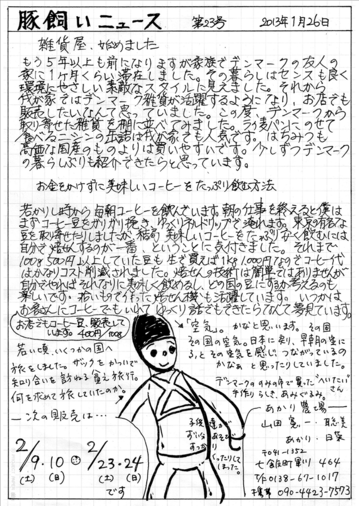 豚飼いニュース 第23号 2013年1月26日
雑貨屋、始めました
もう5年以上も前になりますが家族でデンマークの友人の
家に1ヶ月くらい滞在しました。その暮らしはセンスも良く
環境にやさしい素敵なスタイルに見えました。それから
我が家ではデンマーク雑貨が活躍するようになり、お店でも
販売したいなんて思っていました。この度、デンマークから
取り寄せた雑貨を棚に並べてみました。
高価な国産のものよりは買いやすいです。少しずつデンマーク
の暮らしぶりも紹介できたらと思っています。
お金をかけずに美味しいコーヒーをたっぷり飲む方法
若かりし時から毎朝コーヒーを飲んでいます。朝の仕事を終えると僕は
まずコーヒー豆をガリガリ挽き、ゆっくりネルドリップで淹れます。
豆を取り寄せたりしましたが、結局、美味しいコーヒーをたっぷり安く飲むには
自分で焙煎するのが一番、ということに気付きました。それまで
100g 500円以上していた豆も生で買えば1kg 1,000円
はかなりコスト削減されました。焙煎の技術は簡単ではありませんが
自分でやればそれなりに美味しく飲めるし、どの国の豆にするか考えるのも
楽しいです。
お客さんにコーヒーでもいれてゆっくり話でもできたらなんて夢見ています。
お店でもコーヒー豆、販売して
います。400円/100g
若い頃、いくつかの国へ
旅をしました。ザックをかついで
知り合いを訪ねる貧乏旅行。
何を求めて旅していたのか。
「空気」かなと思います。その国
その国の空気。日本に戻り、早朝の空に
その空気を感じ、つながっているの
かなぁと思ったりしていました。
デンマークの
手作りらしき、あみぐるみ。
次の開店は
2/9.10 と 2/23.24
(土)(日) (土)(日)
です
あかり農場
山田
あかり・日
〒041-1352
七飯町軍川 464
T/F 0138-67-1017
携帯 090-4423-7573